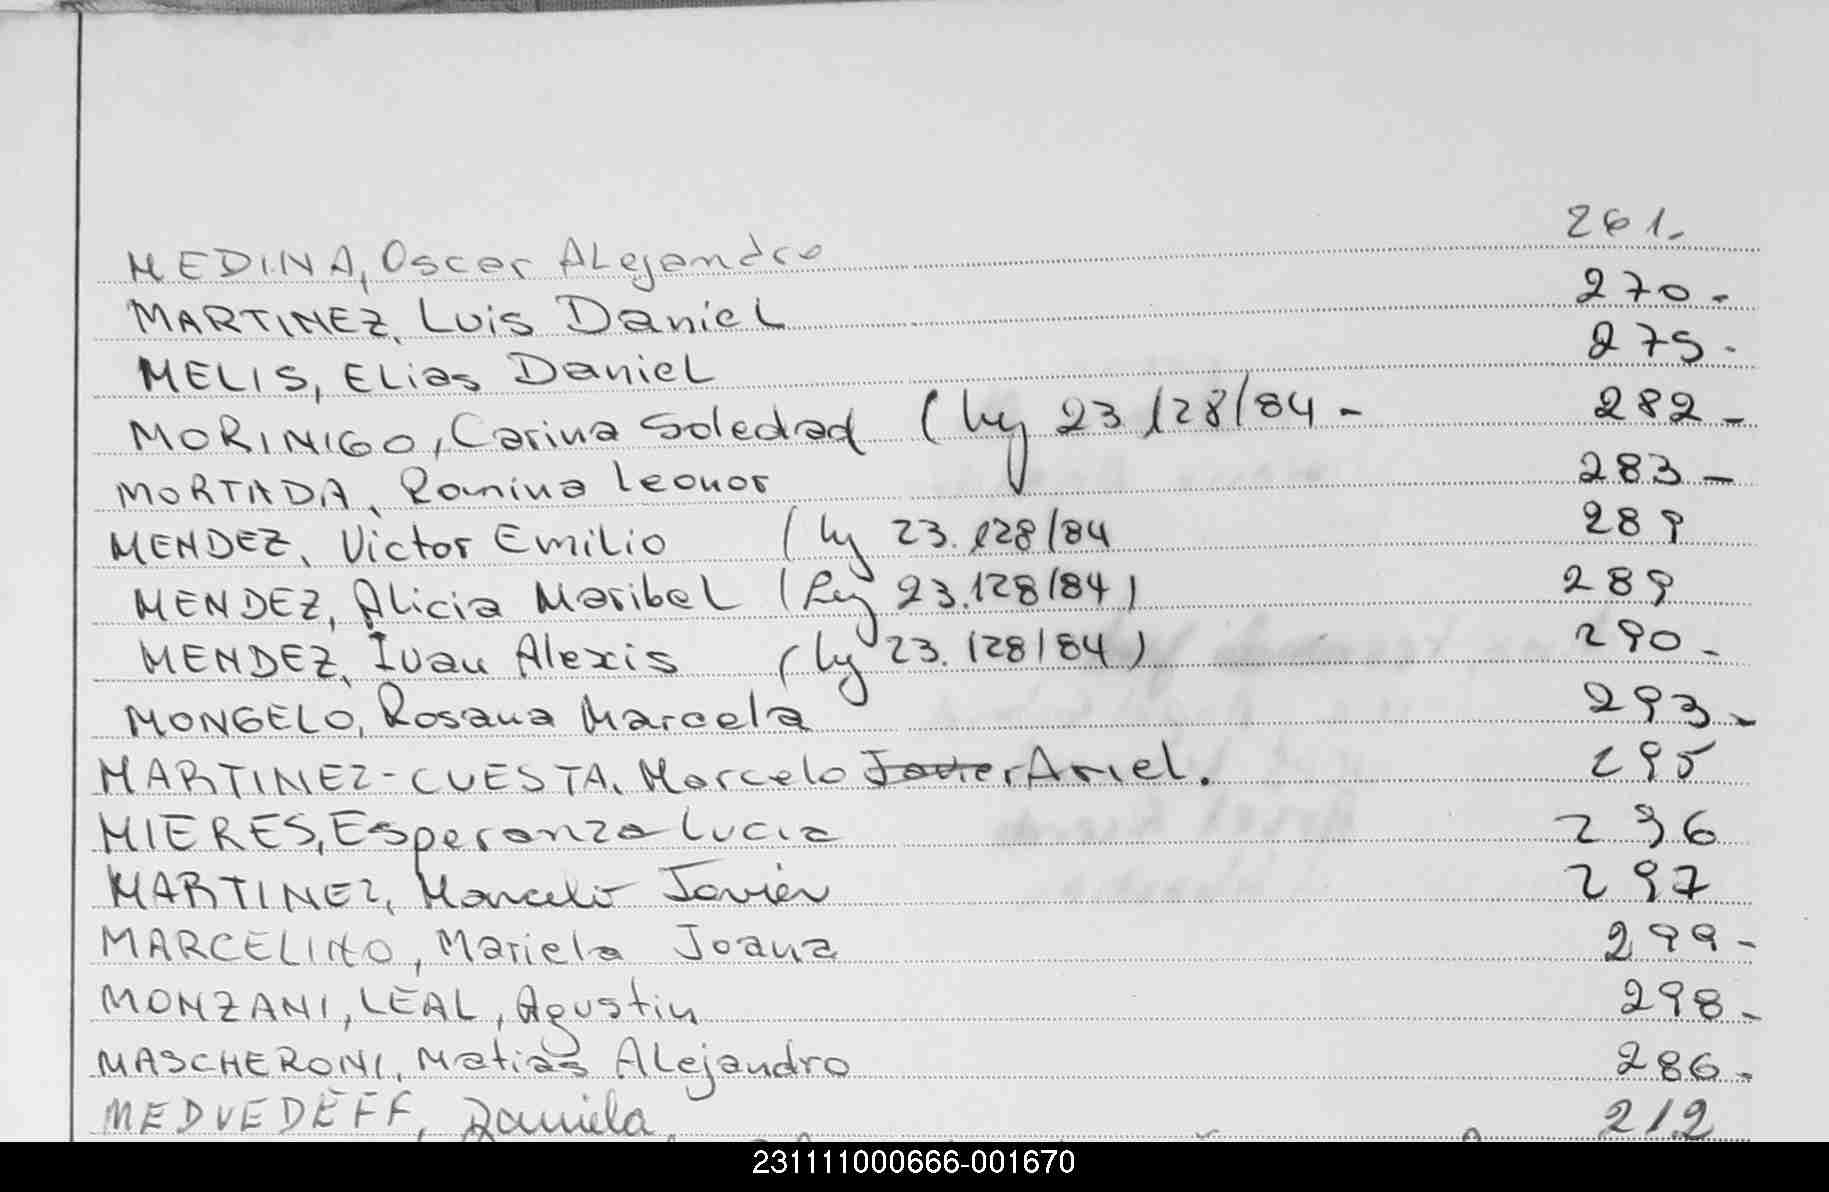 MEDINA, Oscar Alejandro 261.
MARTINEZ, Luis Daniel 270.
MELIS, Elias Daniel 275.
MORINIGO, Carina Soledad (ley 23128/84 - 282-
MORTADA, Romina Leonor 283-
MENDEZ, Victor Emilio (ley 23.128/84 289
MENDEZ, Alicia Maribel (Ley 23.128/84) 289
MENDEZ, Ivan Alexis (ley 23.128/84) 290-
MONGELO, Rosana Marcela 293-
MARTINEZ-CUESTA, Marcelo Javier Ariel. 295
MIERES, Esperanza Lucia 296
MARTINEZ, Marcelo Javier 297
MARCELINO, Mariela Joana 299-
MONZANI, LEAL, Agustin 298-
MASCHERONI, Matias Alejandro 286-
MEDVEDEFF, Daniela 212
231111000666-001670